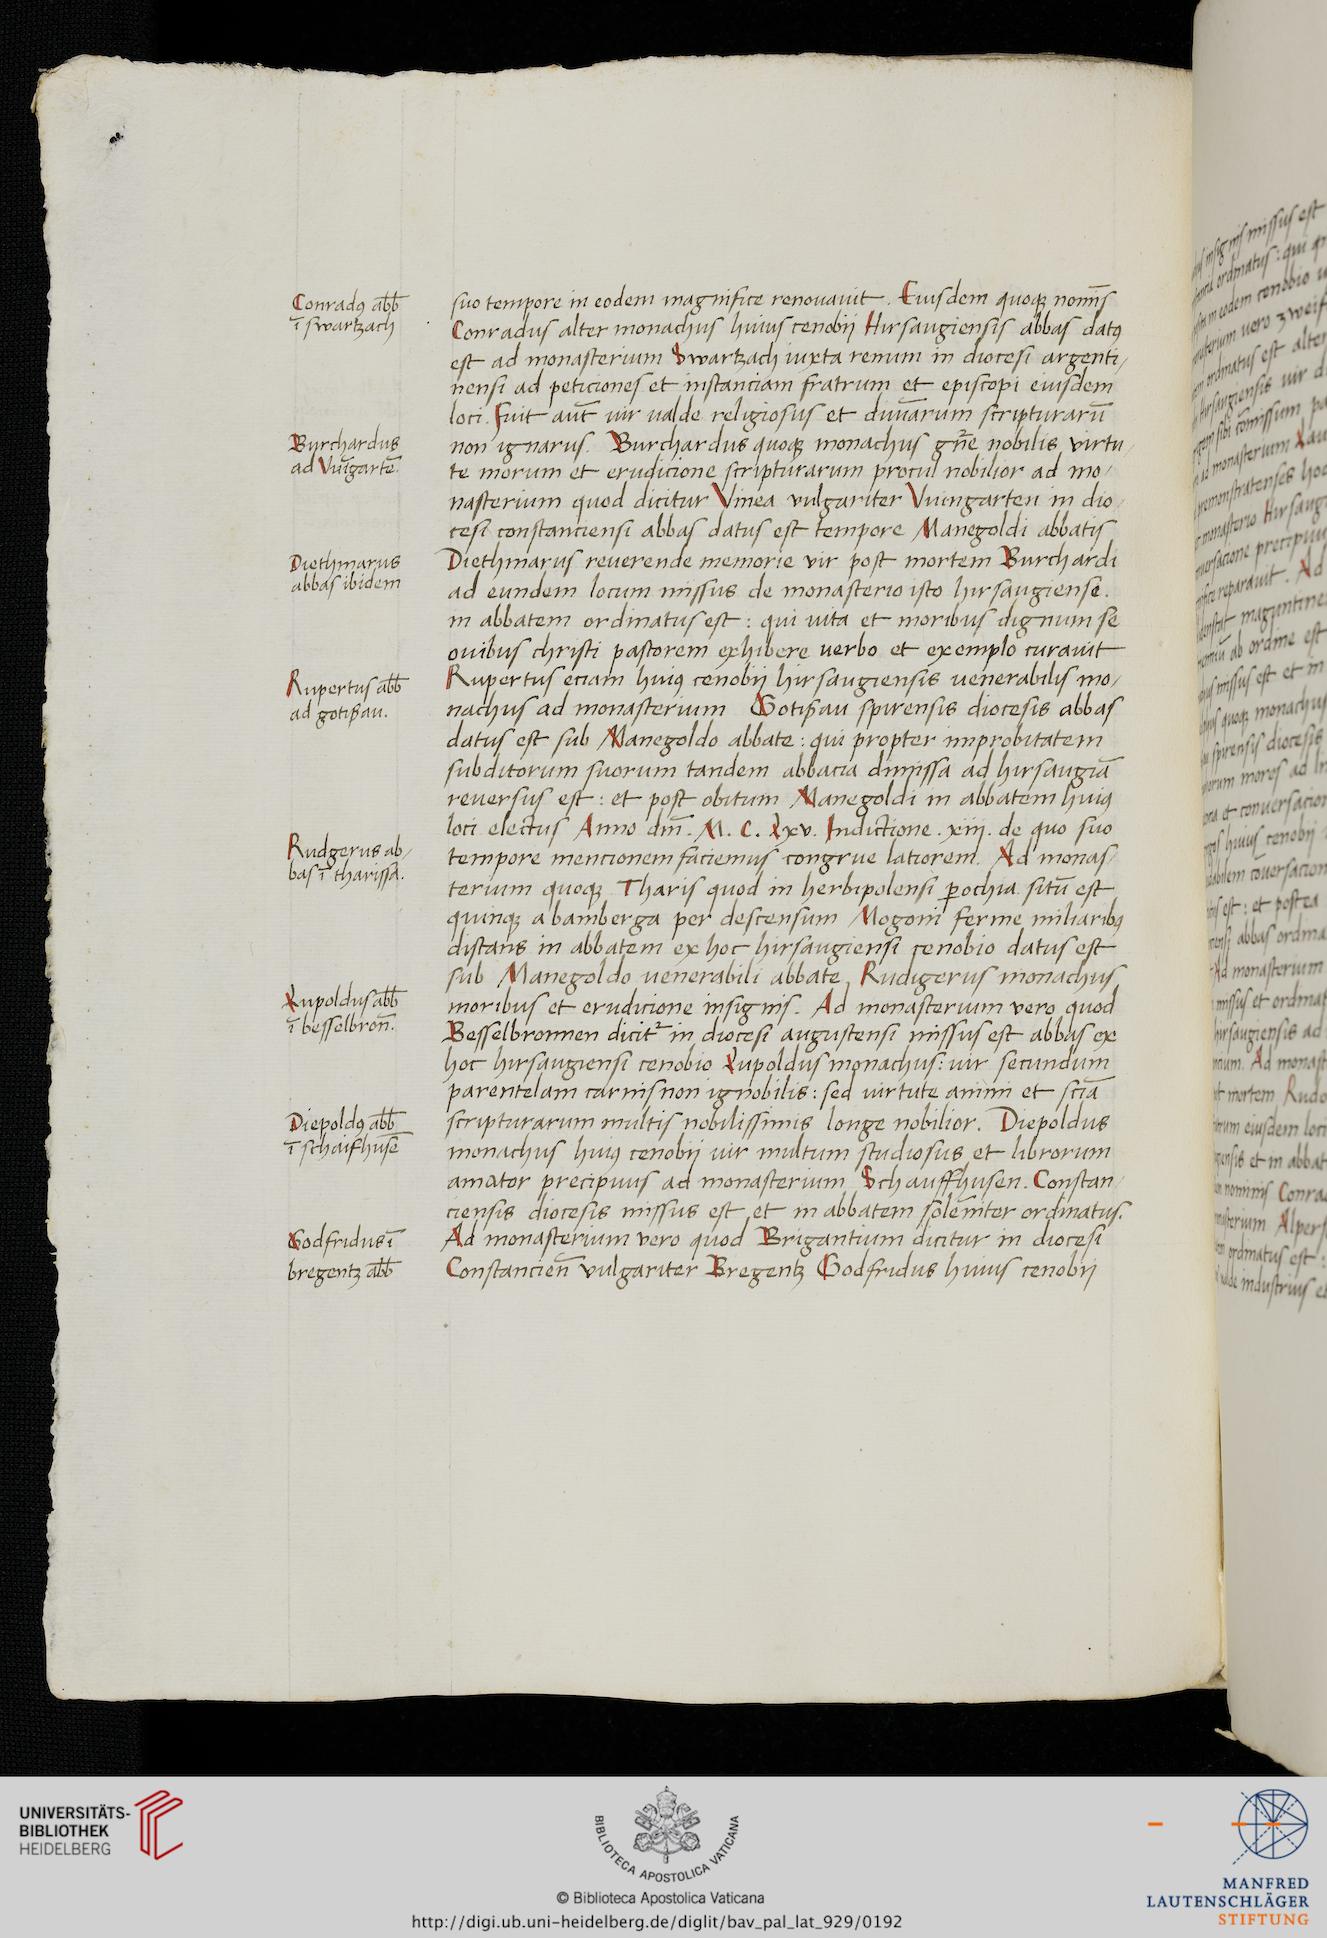 Conradꝯ abb̄
ī swartzach
Burchardus
ad Vuīgartē.
Diethmarus
abbas ibidem
Rupertus abb̄
ad gotiꝭau.
Rudgerus ab/
bas ī tharissa.
Lupoldus abb̄
ī besselbron̄.
Diepoldꝯ abb̄
ī schaifhusē
Godfridus ī
bregentz abb̄
suo tempore in eodem magnifice renouauit. Eiusdem quoqꝫ nomīs
Conradus alter monachus huius cenobij Hirsaugiensis abbas datꝯ
est ad monasterium Swartzach iuxta renum in diocesi argenti/
nensi ad peticiones et instanciam fratrum et episcopi eiusdem
loci. Fuit aut̄ uir ualde religiosus et diuinarum scripturarū
non ignarus. Burchardus quoqꝫ monachus gn̄e nobilis, virtu/
te morum et erudicione scripturarum procul nobilior ad mo/
nasterium quod dicitur Vinea vulgariter Vuingarten in dio/
cesi constanciensi abbas datus est tempore Manegoldi abbatis
Diethmarus reuerende memorie vir post mortem Burchardi
ad eundem locum missus de monasterio isto hirsaugiense.
in abbatem ordinatus est: qui uita et moribus dignum se
ouibus christi pastorem exhibere verbo et exemplo curauit
Rupertus eciam huiꝯ cenobij hirsaugiensis uenerabilis mo/
nachus ad monasterium Gotiꝭau spirensis diocesis abbas
datus est sub Manegoldo abbate: qui propter improbitatem
subditorum suorum tandem abbacia dimissa ad hirsaugiā
reuersus est: et post obitum Manegoldi in abbatem huiꝯ
loci electus Anno dn̄i. M. C. Lxv. Indictione. xiij. de quo suo
tempore mencionem faciemus congrue latiorem. Ad monas/
terium quoqꝫ Tharis quod in herbipolensi ꝑochia situ̅ est
quinqꝫ a bamberga per descensum Mogoni ferme miliaribꝯ
distans in abbatem ex hoc hirsaugiensi cenobio datus est
sub Manegoldo uenerabili abbate, Rudigerus monachus
moribus et erudicione insignis. Ad monasterium vero quod
Besselbronnen dicit᷑ in diocesi augustensi missus est abbas ex
hoc hirsaugiensi cenobio Lupoldus monachus: uir secundum
parentelam carnis non ignobilis: sed uirtute animi et sciā
scripturarum multis nobilissimis longe nobilior. Diepoldus
monachus huiꝯ cenobij uir multum studiosus et librorum
amator precipuus ad monasterium Schauffhusen. Constan/
ciensis diocesis missus est et in abbatem solēniter ordinatus.
Ad monasterium vero quod Brigantium dicitur in diocesi
Constancien̄ vulgariter Bregentz Godfridus huius cenobij
UNIVERSITÄTS-
BIBLIOTHEK
HEIDELBERG
BIBLIOTECA APOSTOLICA VATICANA
© Biblioteca Apostolica Vaticana
http://digi.ub.uni-heidelberg.de/diglit/bav_pal_lat_929/0192
MANFRED
LAUTENSCHLÄGER
STIFTUNG